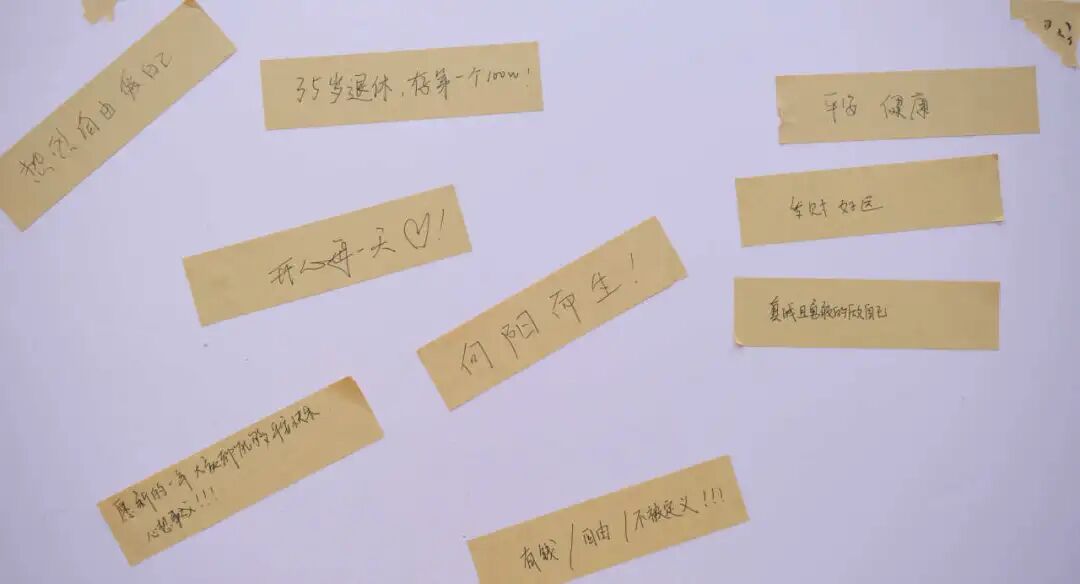 热烈自由做自己
35岁退休，存第一个100w！
平安 健康
发财 好运
开心每一天♡！
向阳而生！
真诚且勇敢的做自己
愿新的一年大家都能够平安快乐
心想事成!!!
有钱/自由/不被定义!!!